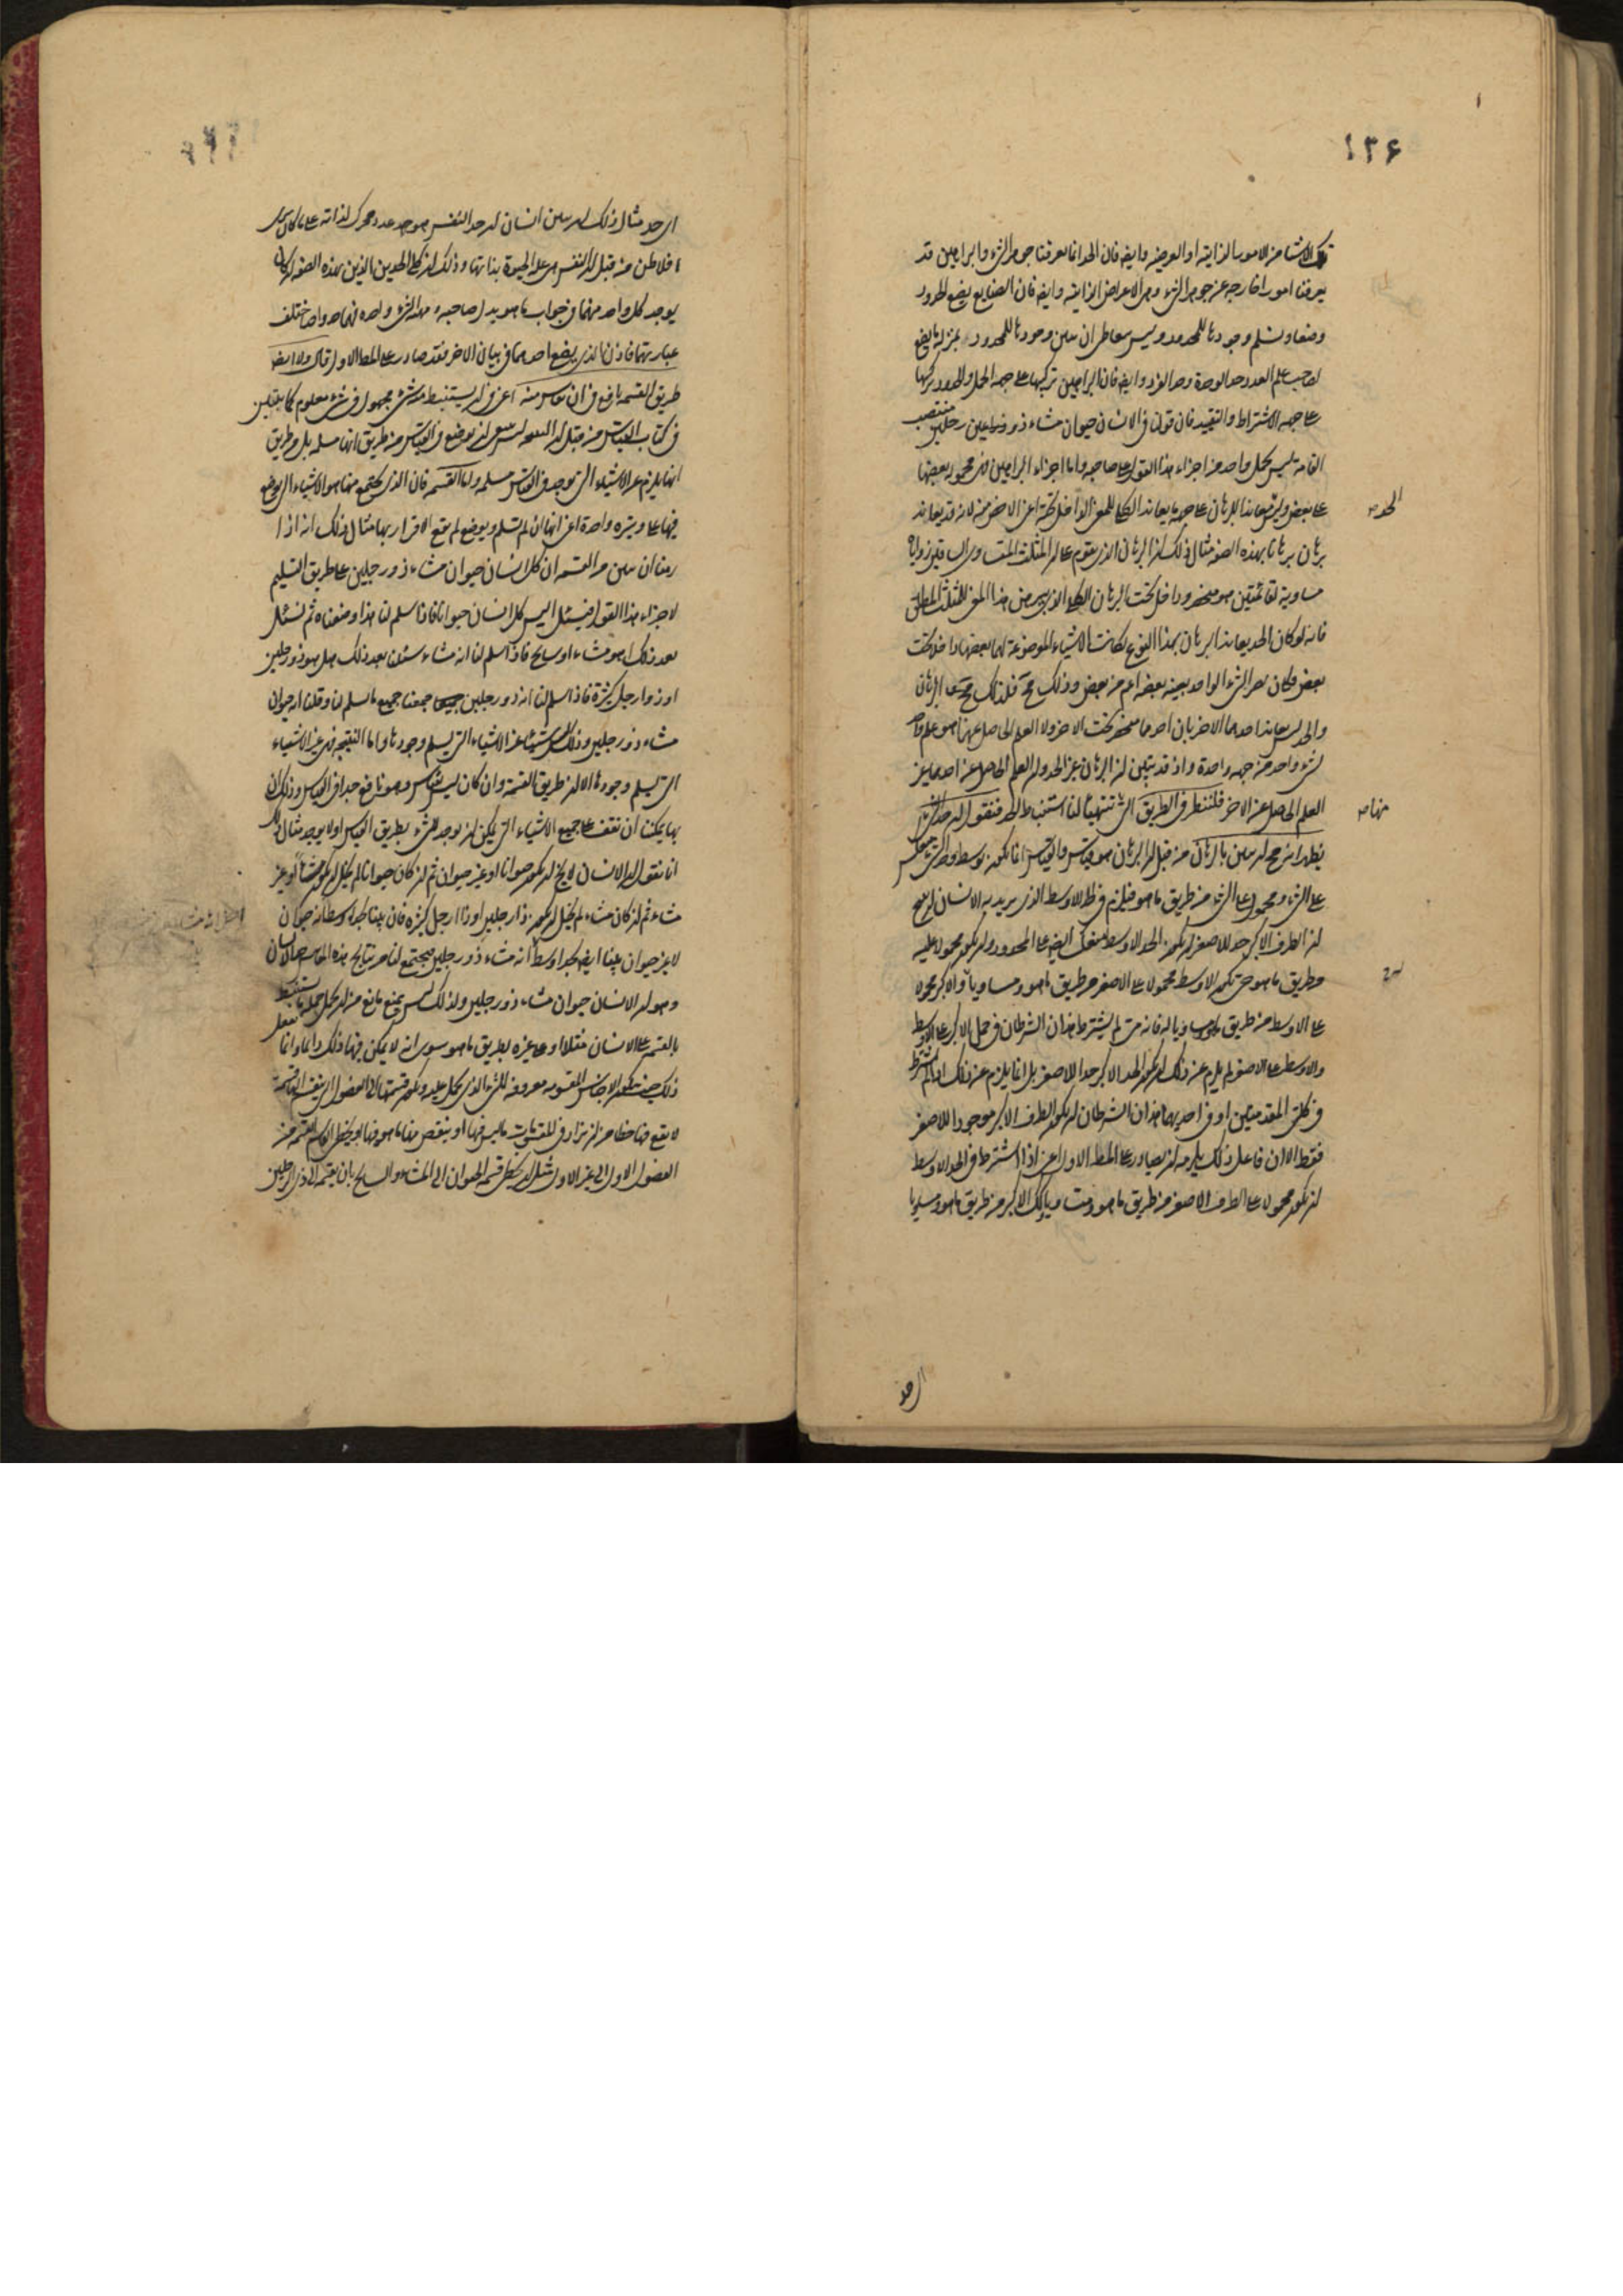 ١٣۶
تلك الاشيا من الامور الذاتية او العرضيه وايضا فان الحد انما يعرفنا جوهر الشئ والبراهين قد
يعرفنا امورا خارجه عن جوهر الشئ وهى الاعراض الذاتيه وايضا فان الصنايع يضع الحدود
وضعا ويتسلم وجودها للمحدود وليس يتعاطى ان يبين وجودها للمحدود بمنزلة ما يضع
صاحب علم العدد حد الوحدة وحد الفرد وايضا فان البراهين تركيبها على جهه الحمل والحدود تركيبها
على جهه الاشتراط والتقييد فان قولنا فى الانسان حيوان مشاء ذو رجلين منتصب
القامة ليس يحمل واحد من اجزاء هذا القول على صاحبه واما اجزاء البراهين فهى محموله بعضها
على بعض وليس يعاند البرهان على جهه ما يعاند الكلى للمعنى الداخل تحته اعنى الاخص منه لانه قد يعاند
الحد
برهان برهانا بهذه الصفه مثال ذلك ان البرهان الذى يقوم على ان المثلث المتساوى الساقين زواياه
مساوية لقائمتين هو منحصر وداخل تحت البرهان الكلى الذى يبرهن هذا المعنى للمثلث المطلق
فانه لو كان الحد يعاند البرهان بهذا النوع لكانت الاشياء الموضوعة لهما بعضها داخلا تحت
بعض ولكان حد الشئ الواحد بعينه بعضه اعم من بعض وذلك مح فلذلك مح على البرهان
والحد ليس يعاند احدهما الاخر بان احدهما منحصر تحت الاخر ولا العلم الحاصل عنهما هو علم واحد
لشئ واحد من جهه واحدة واذ قد تبين ان البرهان غير الحد وان العلم الحاصل عن احدهما غير
العلم الحاصل عن الاخر فلننظر فى الطريق التى منها تتهيأ لنا استنباط الحد فنقول ان الحد
منها
يظهر انه مح ان يبين بالبرهان من قبل ان البرهان هو قياس والقياس انما يكون بوسط
على الشئ ومحمول على الشئ من طريق ما هو فيلزم فى الحد الاوسط الذى يريد به الانسان ان يبين
ان الطرف الاكبر حد للاصغر ان يكون الحد الاوسط منعكسا ايضا على المحدود وان يكون محمولا عليه
من طريق ما هو حتى يكون الاوسط محمولا على الاصغر من طريق ما هو ومساويا له والاكبر محمولا
على الاوسط من طريق ما هو ومساويا له فانه متى لم يشترط هذان الشرطان فى حمل الاكبر على الاوسط
والاوسط على الاصغر لم يلزم عن ذلك ان يكون الحد الاكبر حدا للاصغر بل انما يلزم عن ذلك اذا لم يشترط
فى كلتى المقدمتين او فى احديهما هذان الشرطان ان يكون الطرف الاكبر موجودا للاصغر
فقط الا ان فاعل ذلك يلزمه ان يصادر على المطلوب الاول اعنى اذا اشترط فى الحد الاوسط
ان يكون محمولا على الطرف الاصغر من طريق ما هو ومساويا له وكذلك الاكبر من طريق ما هو ومساويا
اى حد مثال ذلك ان يبين انسان ان حد النفس هو عدد محرك لذاته على ما كان يرى
افلاطن من قبل ان النفس هى علة الحيوة بذاتها وذلك ان كلى الحدين الذين بهذه الصفه
يوجد كل واحد منهما فى جواب ما هو بدل صاحبه لهذا الشئ واحد فهما حد واحد اختلف
عبارتهما فاذن الذى يضع احدهما فى بيان الاخر فقد صادر على المط الاول قال ولا ايضا
طريق القسمه نافع فى ان يقاس منه اعنى فى ان يستنبط منه شئ مجهول فى شئ معلوم كما تبين
فى كتاب القياس من قبل ان القسمه ليس يوضع فى القياس من طريق انها مسلمه بل من طريق
انها يلزم عن الاشياء التى توجد فى القياس مسلمه واما القسمه فان الذى يجتمع منها هو الاشياء التى يوضع
فيها على وتيره واحدة اعنى انها ان لم تسلم ويوضع لم يقع الاقرار بها مثال ذلك انه اذا
رمنا ان نبين من القسمه ان كل انسان حيوان مشاء ذو رجلين على طريق التسليم
لاجزاء هذا القول فيسئل اليس كل انسان حيوانا فاذا سلم لنا هذا وضعناه ثم نسئل
بعد ذلك اهو مشاء او سابح فاذا سلم لنا انه مشاء سئلنا بعد ذلك هل هو ذو رجلين
او ذو ارجل كثيرة فاذا سلم لنا انه ذو رجلين جمعنا جميع ما سلم لنا وقلنا انه حيوان
مشاء ذو رجلين وذلك ليس شيئا غير الاشياء التى تسلم وجودها واما النتيجه فهى غير الاشياء
التى تسلم وجودها الا ان طريق القسمة وان كان ليس بقياس فهو نافع جدا فى القياس وذلك ان
بها يمكننا ان نقف على جميع الاشياء التى يمكن ان توجد للشئ بطريق القياس اولا يوجد مثال ذلك
انا نقول ان الانسان لا يخلو ان يكون حيوانا او غير حيوان ثم ان كان حيوانا لم يخل ان يكون مشاء او غير
مشاء ثم ان كان مشاء لم يخل ان يكون ذا رجلين او ذا ارجل كثيره فان بينا بحد اوسط انه حيوان
لا غير حيوان وبينا ايضا بحد اوسط انه مشاء ذو رجلين فيجتمع لنا من نتايج هذه المقاييس حد الانسان
وهو ان الانسان حيوان مشاء ذو رجلين ولذلك ليس يمنع مانع من ان يحمل جمله ما يستنبط
بالقسمه على الانسان مثلا او على غيره بطريق ما هو سوى انه لا يمكن فيها ذلك دائما وانما يفعل
ذلك حين يكون الاجناس المقسومه معروفه للشئ الذى يحمل عليه ويكون قسمتها الى الفصول التى ينقسم اليها قسمة
لا يقع فيها خطا من ان يزاد فى المقسومات ما ليس فيها او ينقص منها ما هو فيها او يتخطى القاسم القسمه من
الفصول الاول الى غير الاول مثل ان يتخطى قسمه الحيوان الى المشاء والسابح بان يقسمه الى ذى الرجلين